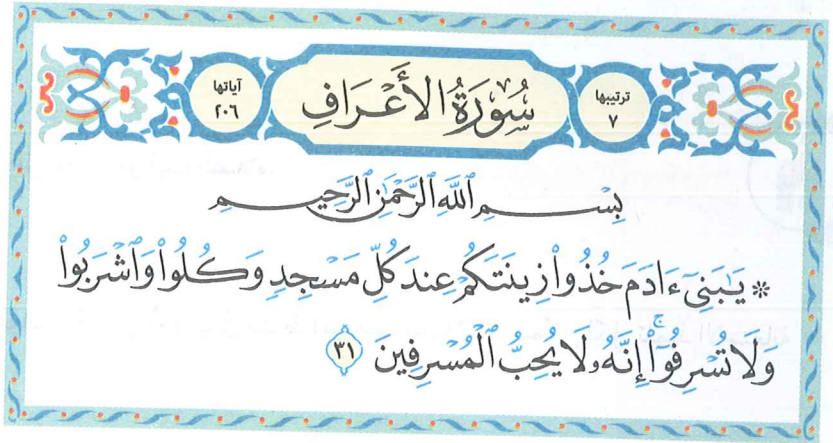 ترتيبها
٧
سُورَةُ الأَعْرَافِ
آياتها
٢٠٦
بِسْمِ ٱللَّهِ ٱلرَّحْمَٰنِ ٱلرَّحِيمِ
* يَٰبَنِىٓ ءَادَمَ خُذُوا۟ زِينَتَكُمْ عِندَ كُلِّ مَسْجِدٍ وَكُلُوا۟ وَٱشْرَبُوا۟
وَلَا تُسْرِفُوٓا۟ ۚ إِنَّهُۥ لَا يُحِبُّ ٱلْمُسْرِفِينَ ٣١